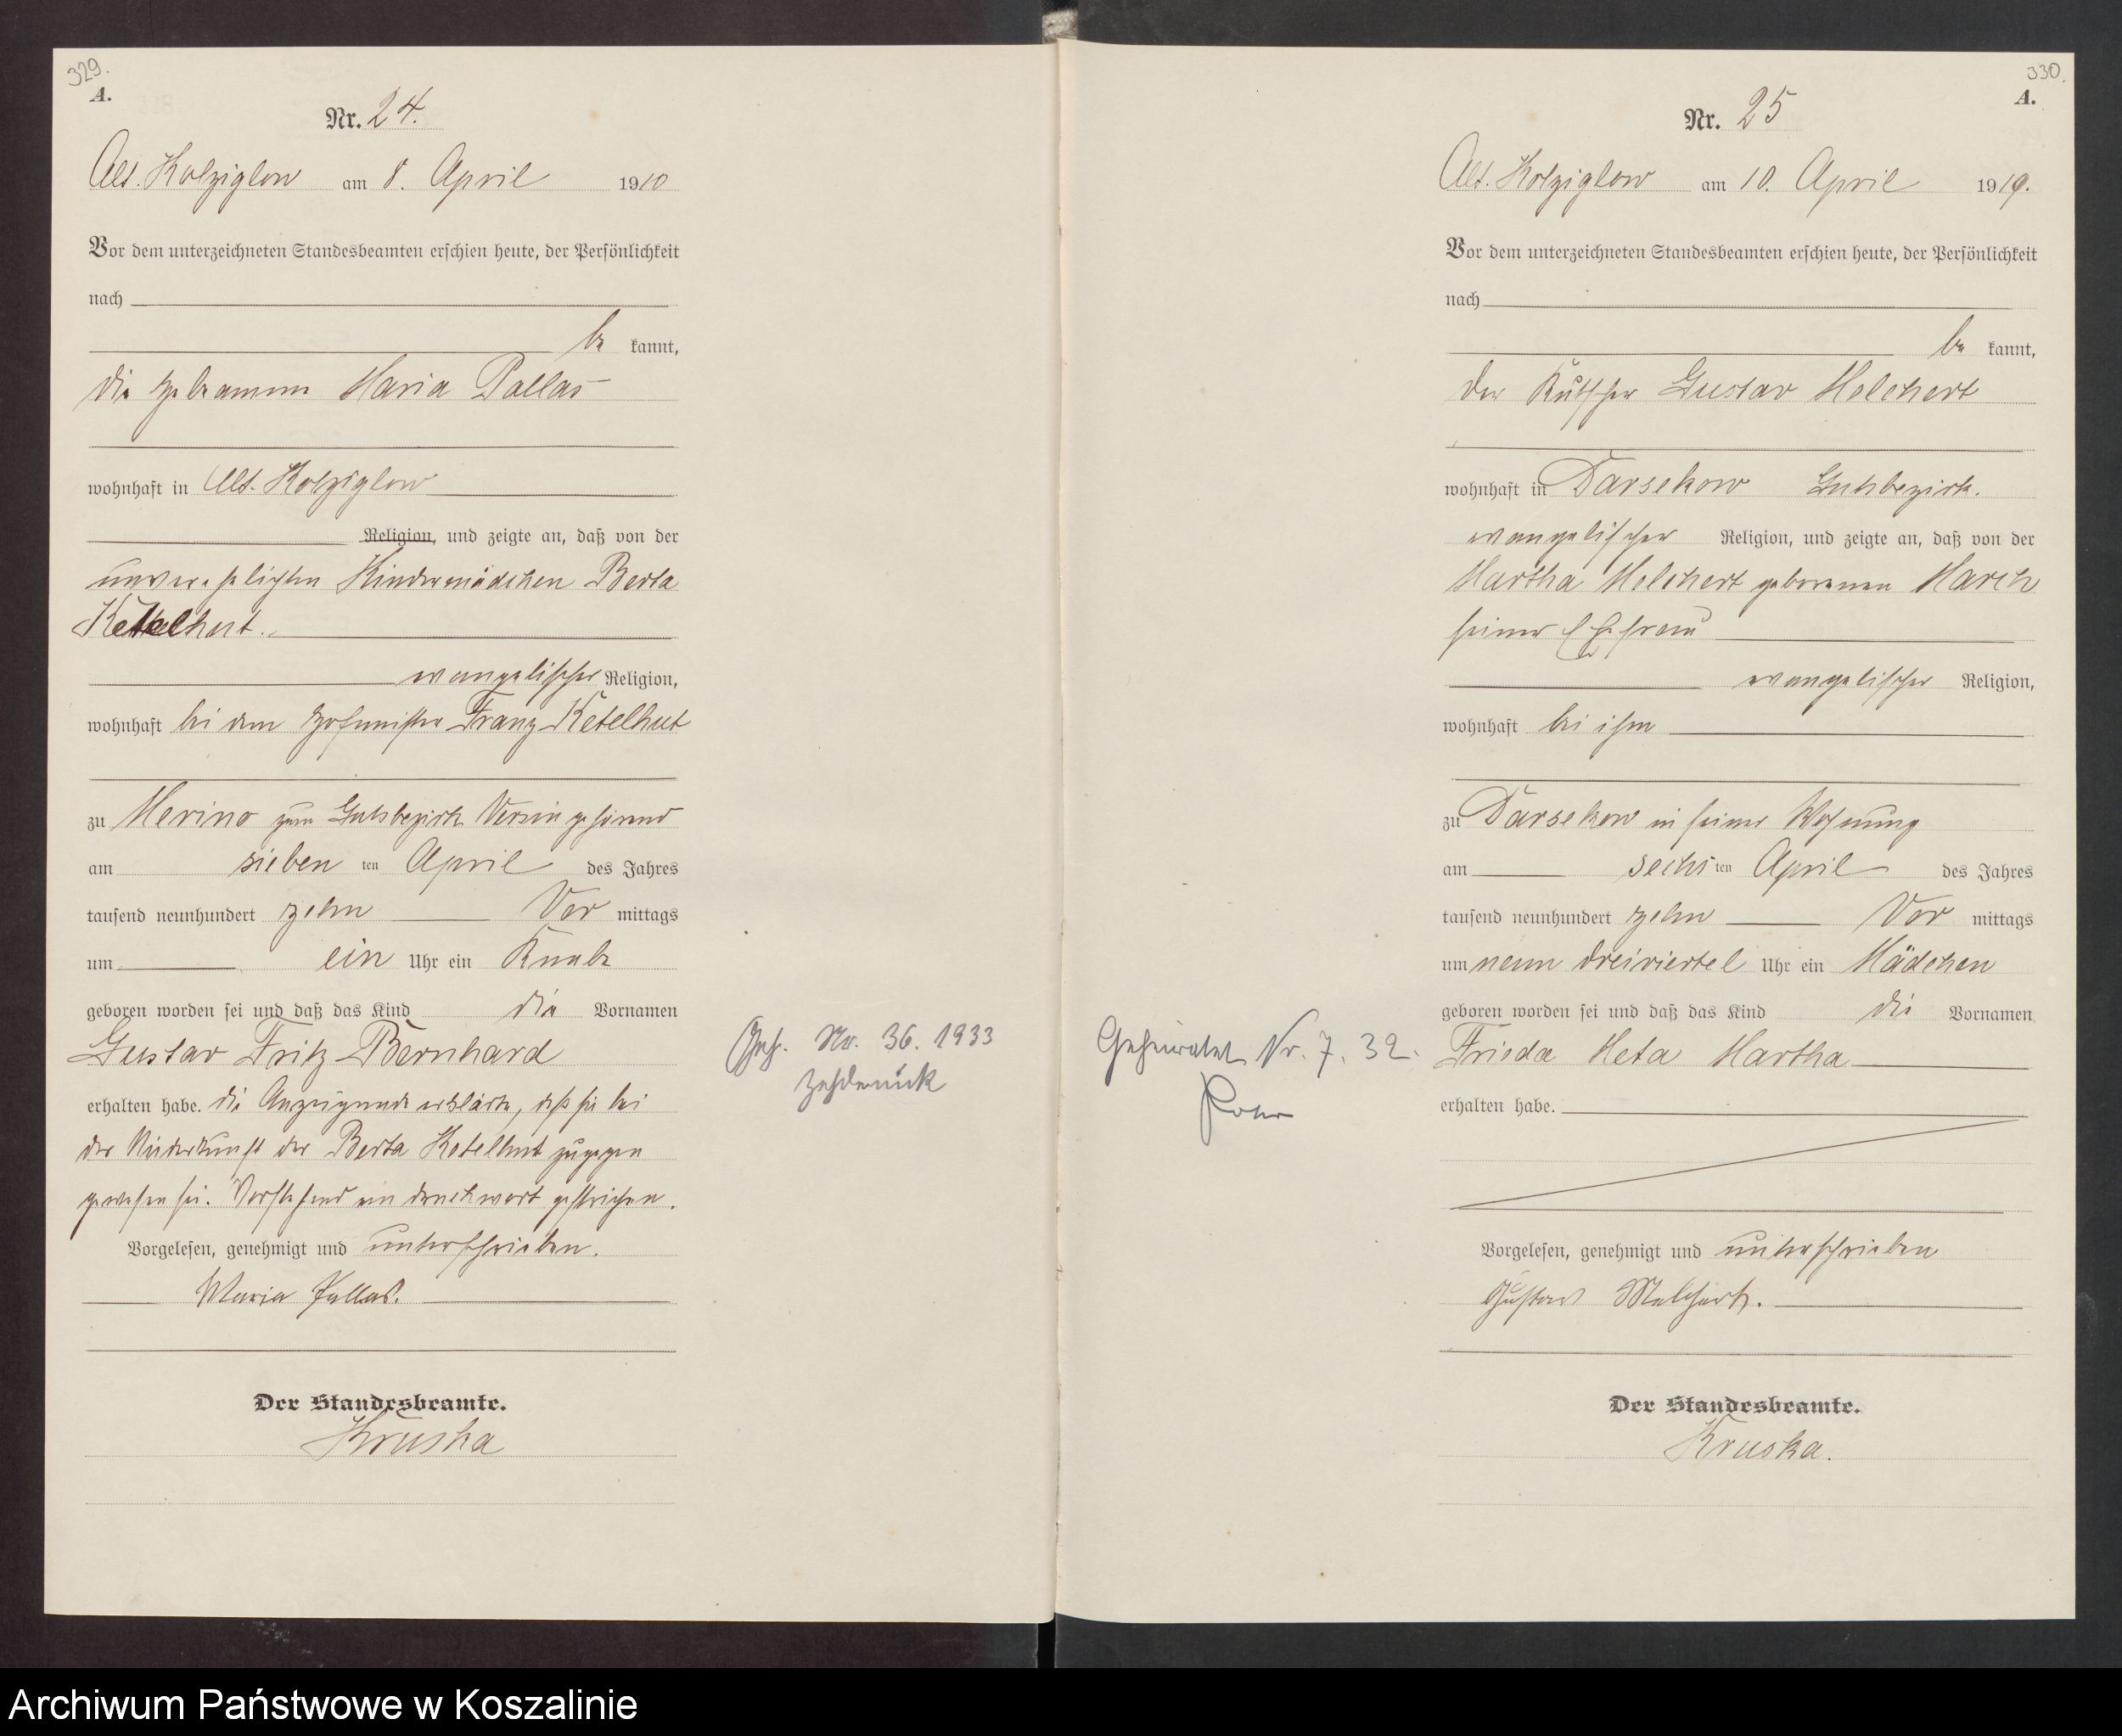 329.
A.
Nr. 24.
Alt. Kolziglow am 8. April 1910
Vor dem unterzeichneten Standesbeamten erschien heute, der Persönlichkeit
nach
be kannt,
die Hebamme Maria Pallas
wohnhaft in Alt. Kolziglow
Religion, und zeigte an, daß von der
unverehelichten Kindermädchen Berta
Ketelhut.
evangelischer Religion,
wohnhaft bei dem Hofmeister Franz Ketelhut
zu Merino zum Gutsbezirk Versin gehörend
am sieben ten April des Jahres
tausend neunhundert zehn Vor mittags
um ein Uhr ein Knabe
geboren worden sei und daß das Kind die Vornamen
Gustav Fritz Bernhard
erhalten habe. die Anzeigende erklärte, daß sie bei
der Niederkunft der Berta Ketelhut zugegen
gewesen sei. Vorstehend ein druckwort gestrichen.
Vorgelesen, genehmigt und unterschrieben.
Maria Pallas.
Der Standesbeamte.
Kruska
Geh. Nr. 36. 1933
Zehdenick
330.
A.
Nr. 25
Alt. Kolziglow am 10. April 1910.
Vor dem unterzeichneten Standesbeamten erschien heute, der Persönlichkeit
nach
be kannt,
der Kutscher Gustav Melchert
wohnhaft in Darsekow Gutsbezirk.
evangelischer Religion, und zeigte an, daß von der
Martha Melchert geborenen March
seiner Ehefrau
evangelischer Religion,
wohnhaft bei ihm
zu Darsekow in seiner Wohnung
am sechs ten April des Jahres
tausend neunhundert zehn Vor mittags
um neun dreiviertel Uhr ein Mädchen
geboren worden sei und daß das Kind die Vornamen
Frieda Meta Martha
erhalten habe.
Vorgelesen, genehmigt und unterschrieben
Gustav Melchert.
Der Standesbeamte.
Kruska.
Geheiratet Nr. 7. 32.
Archiwum Państwowe w Koszalinie